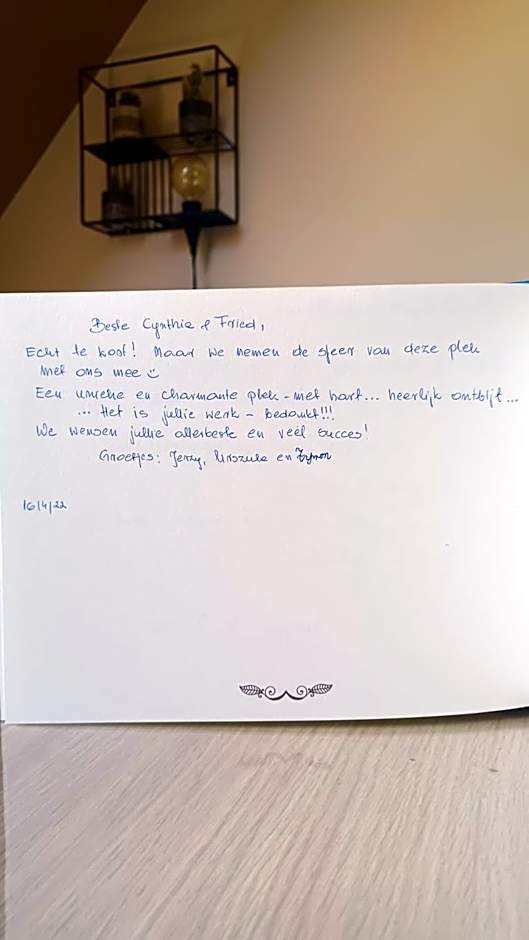 Beste Cynthia & Fried,
Echt te koof! Maar we nemen de sfeer van deze plek
met ons mee
Een unieke en charmante plek - met hart... heerlijk ontbijt...
... Het is jullie werk - bedankt!!!
We wensen jullie allerbeste en veel succes!
Groetjes: Jerzy, Urszula en Zymon
16/4/22